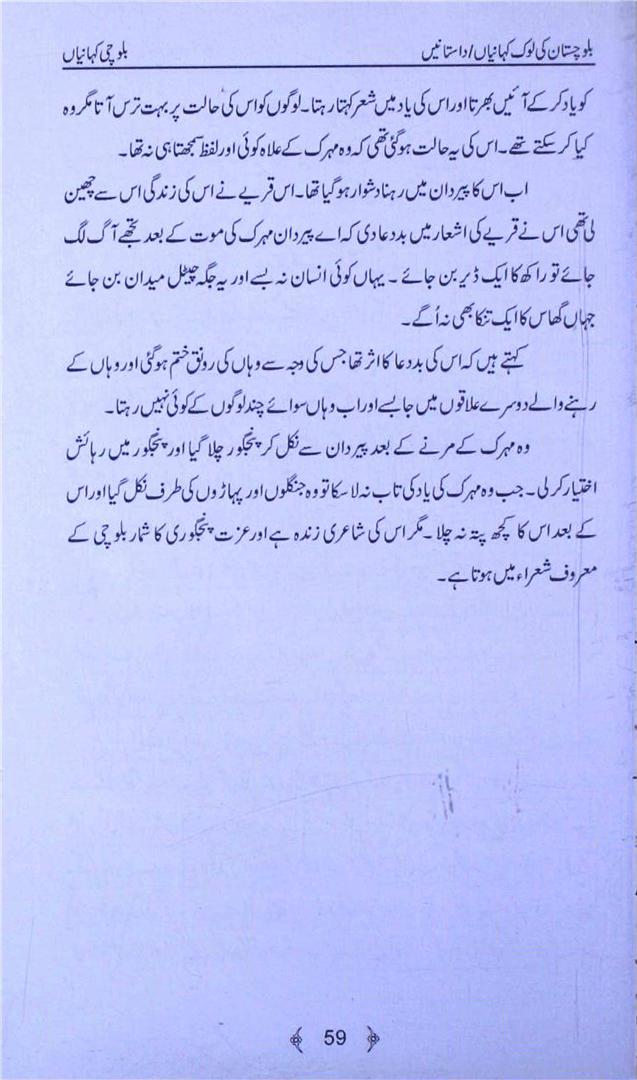 بلوچستان کی لوک کہانیاں/داستانیں بلوچی کہانیاں
کو یاد کر کے آئیں بھرتا اور اس کی یاد میں شعر کہتا رہتا۔ لوگوں کو اس کی حالت پر بہت ترس آتا مگر وہ
کیا کر سکتے تھے۔ اس کی یہ حالت ہو گئی تھی کہ وہ مہرک کے علاہ کوئی اور لفظ سمجھتا ہی نہ تھا۔
اب اس کا پیردان میں رہنا دشوار ہو گیا تھا۔ اس قریے نے اس کی زندگی اس سے چھین
لی تھی اس نے قریے کی اشعار میں بددعا دی کہ اے پیردان مہرک کی موت کے بعد تجھے آگ لگ
جائے تو راکھ کا ایک ڈیر بن جائے ۔ یہاں کوئی انسان نہ بسے اور یہ جگہ چٹیل میدان بن جائے
جہاں گھاس کا ایک تنکا بھی نہ اُگے۔
کہتے ہیں کہ اس کی بددعا کا اثر تھا جس کی وجہ سے وہاں کی رونق ختم ہو گئی اور وہاں کے
رہنے والے دوسرے علاقوں میں جا بسے اور اب وہاں سوائے چند لوگوں کے کوئی نہیں رہتا۔
وہ مہرک کے مرنے کے بعد پیردان سے نکل کر پنجگور چلا گیا اور پنجگور میں رہائش
اختیار کر لی۔ جب وہ مہرک کی یاد کی تاب نہ لا سکا تو وہ جنگلوں اور پہاڑوں کی طرف نکل گیا اور اس
کے بعد اس کا کچھ پتہ نہ چلا۔ مگر اس کی شاعری زندہ ہے اور عزت پنجگوری کا شمار بلوچی کے
معروف شعراء میں ہوتا ہے۔
59